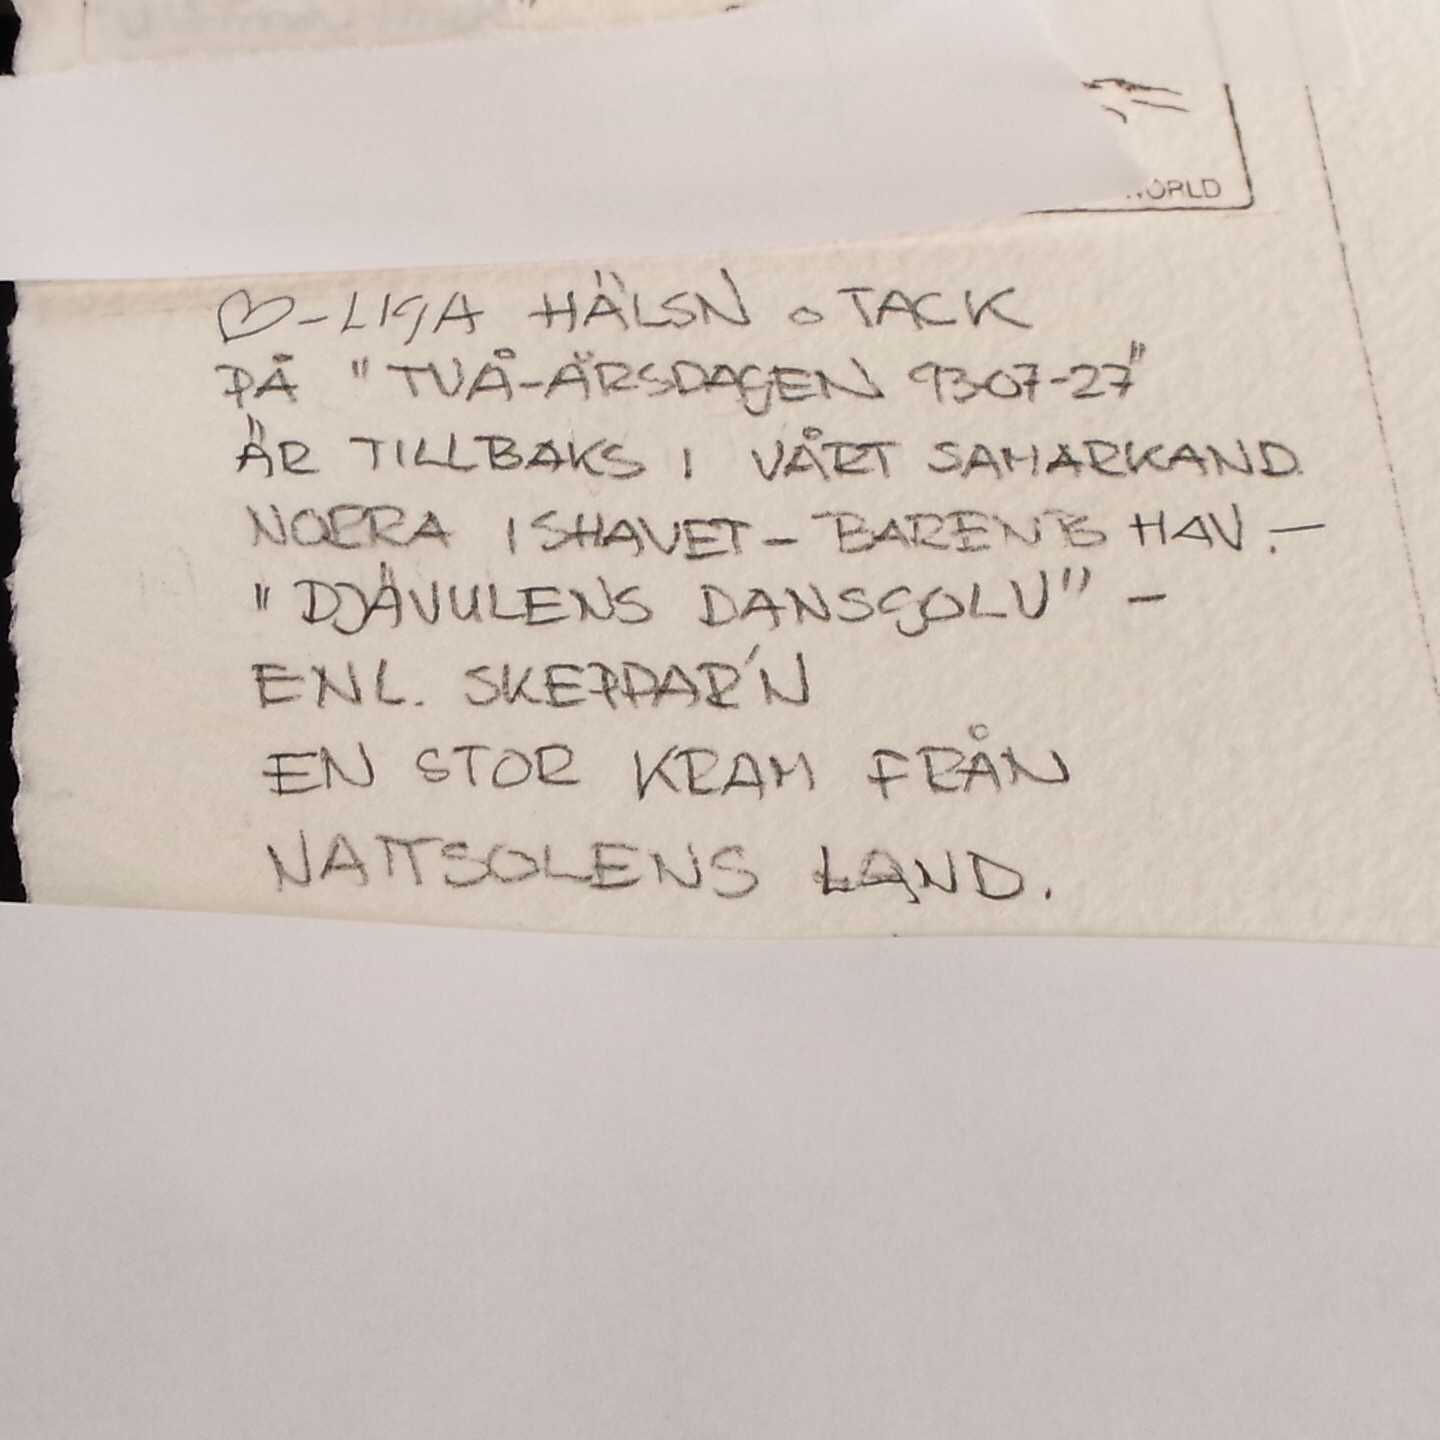 ♡-LIGA HÄLSN o TACK
PÅ "TVÅ-ÅRSDAGEN 9307-27"
ÄR TILLBAKS I VÅRT SAMARKAND.
NORRA ISHAVET - BARENTS HAV. -
"DJÄVULENS DANSGOLV" -
ENL. SKEPPAR'N
EN STOR KRAM FRÅN
NATTSOLENS LAND.